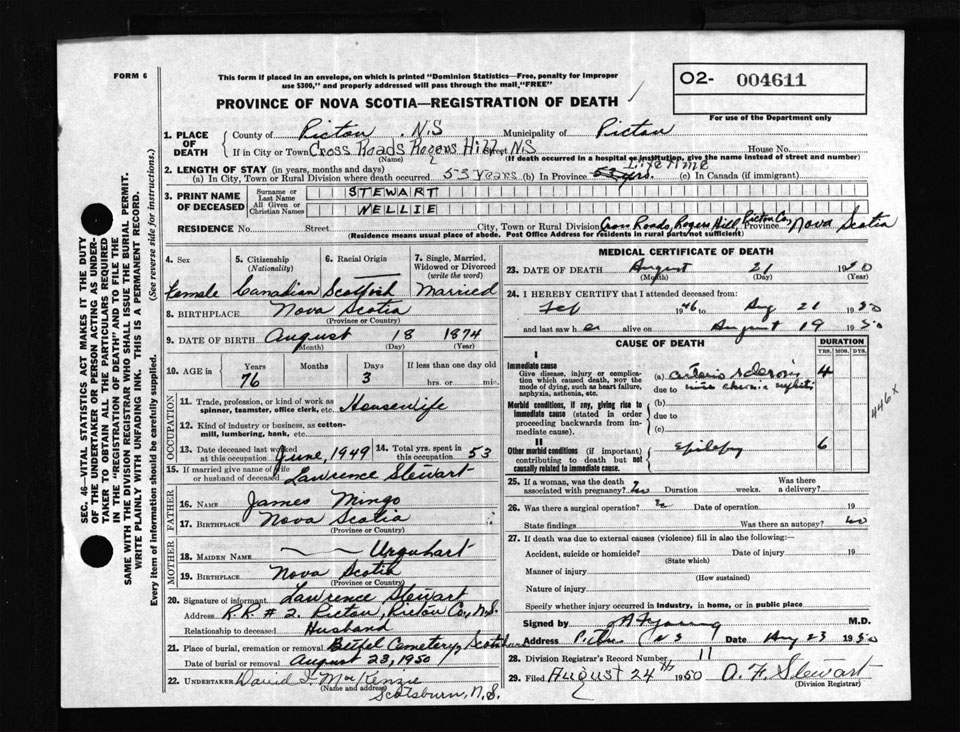 FORM 6
This form if placed in an envelope, on which is printed "Dominion Statistics—Free, penalty for improper
use $300," and properly addressed will pass through the mail, "FREE"
O2- 004611
For use of the Department only
PROVINCE OF NOVA SCOTIA—REGISTRATION OF DEATH
1. PLACE OF DEATH
County of Pictou N.S Municipality of Pictou
If in City or Town Cross Roads Rogers Hill Street N.S House No.
(Name) (If death occurred in a hospital or institution, give the name instead of street and number)
2. LENGTH OF STAY (in years, months and days) Life time
(a) In City, Town or Rural Division where death occurred 53 years (b) In Province 53 yrs. (c) In Canada (if immigrant)
3. PRINT NAME OF DECEASED
Surname or Last Name STEWART
All Given or Christian Names NELLIE
RESIDENCE No. Street City, Town or Rural Division Cross Roads, Rogers Hill, Pictou Co, Province Nova Scotia
(Residence means usual place of abode. Post Office Address for residents in rural parts not sufficient)
4. Sex
Female
5. Citizenship (Nationality)
Canadian
6. Racial Origin
Scottish
7. Single, Married, Widowed or Divorced (write the word)
Married
8. BIRTHPLACE Nova Scotia
(Province or Country)
9. DATE OF BIRTH August 18 1874
(Month) (Day) (Year)
10. AGE in Years Months Days If less than one day old
76 3 hrs. or min.
OCCUPATION
11. Trade, profession, or kind of work as spinner, teamster, office clerk, etc. Housewife
12. Kind of industry or business, as cotton-mill, lumbering, bank, etc.
13. Date deceased last worked at this occupation June, 1949 14. Total yrs. spent in this occupation 53
15. If married give name of wife or husband of deceased Lawrence Stewart
FATHER
16. NAME James Mingo
17. BIRTHPLACE Nova Scotia
(Province or Country)
MOTHER
18. MAIDEN NAME — — Urquhart
19. BIRTHPLACE Nova Scotia
(Province or Country)
20. Signature of informant Lawrence Stewart
Address R.R. # 2. Pictou, Pictou Co, N.S.
Relationship to deceased Husband
21. Place of burial, cremation or removal Bethel Cemetery, Scotsburn
Date of burial or removal August 23, 1950
22. UNDERTAKER David I. MacKenzie
(Name and address) Scotsburn, N.S.
MEDICAL CERTIFICATE OF DEATH
23. DATE OF DEATH August 21 1950
(Month) (Day)
24. I HEREBY CERTIFY that I attended deceased from
Feb 1946 to Aug 21 1950
and last saw her alive on August 19 1950
CAUSE OF DEATH DURATION
YRS. MOS. DYS.
I
Immediate cause
Give disease, injury or complication which caused death, NOT the mode of dying, such as heart failure, asphyxia, asthenia, etc.
(a) arterio sclerosis 4
due to chronic nephritis
Morbid conditions, if any, giving rise to immediate cause (stated in order proceeding backwards from immediate cause).
(b)
due to
(c)
446 x
II
Other morbid conditions (if important) contributing to death but not causally related to immediate cause.
Epilepsy 6
25. If a woman, was the death associated with pregnancy? No Duration weeks. Was there a delivery?
26. Was there a surgical operation? No Date of operation 19
State findings Was there an autopsy? no
27. If death was due to external causes (violence) fill in also the following:—
Accident, suicide or homicide? Date of injury 19
(State which)
Manner of injury
(How sustained)
Nature of injury
Specify whether injury occurred in industry, in home, or in public place
Signed by Young M.D.
Address Pictou N S Date Aug 23 1950
28. Division Registrar's Record Number 11
29. Filed August 24th 1950 D. F. Stewart
(Division Registrar)
SEC. 46—VITAL STATISTICS ACT MAKES IT THE DUTY
OF THE UNDERTAKER OR PERSON ACTING AS UNDER-
TAKER TO OBTAIN ALL THE PARTICULARS REQUIRED
IN THE "REGISTRATION OF DEATH" AND TO FILE THE
SAME WITH THE DIVISION REGISTRAR WHO SHALL ISSUE THE BURIAL PERMIT.
WRITE PLAINLY WITH UNFADING INK. THIS IS A PERMANENT RECORD.
Every item of information should be carefully supplied. (See reverse side for instructions.)